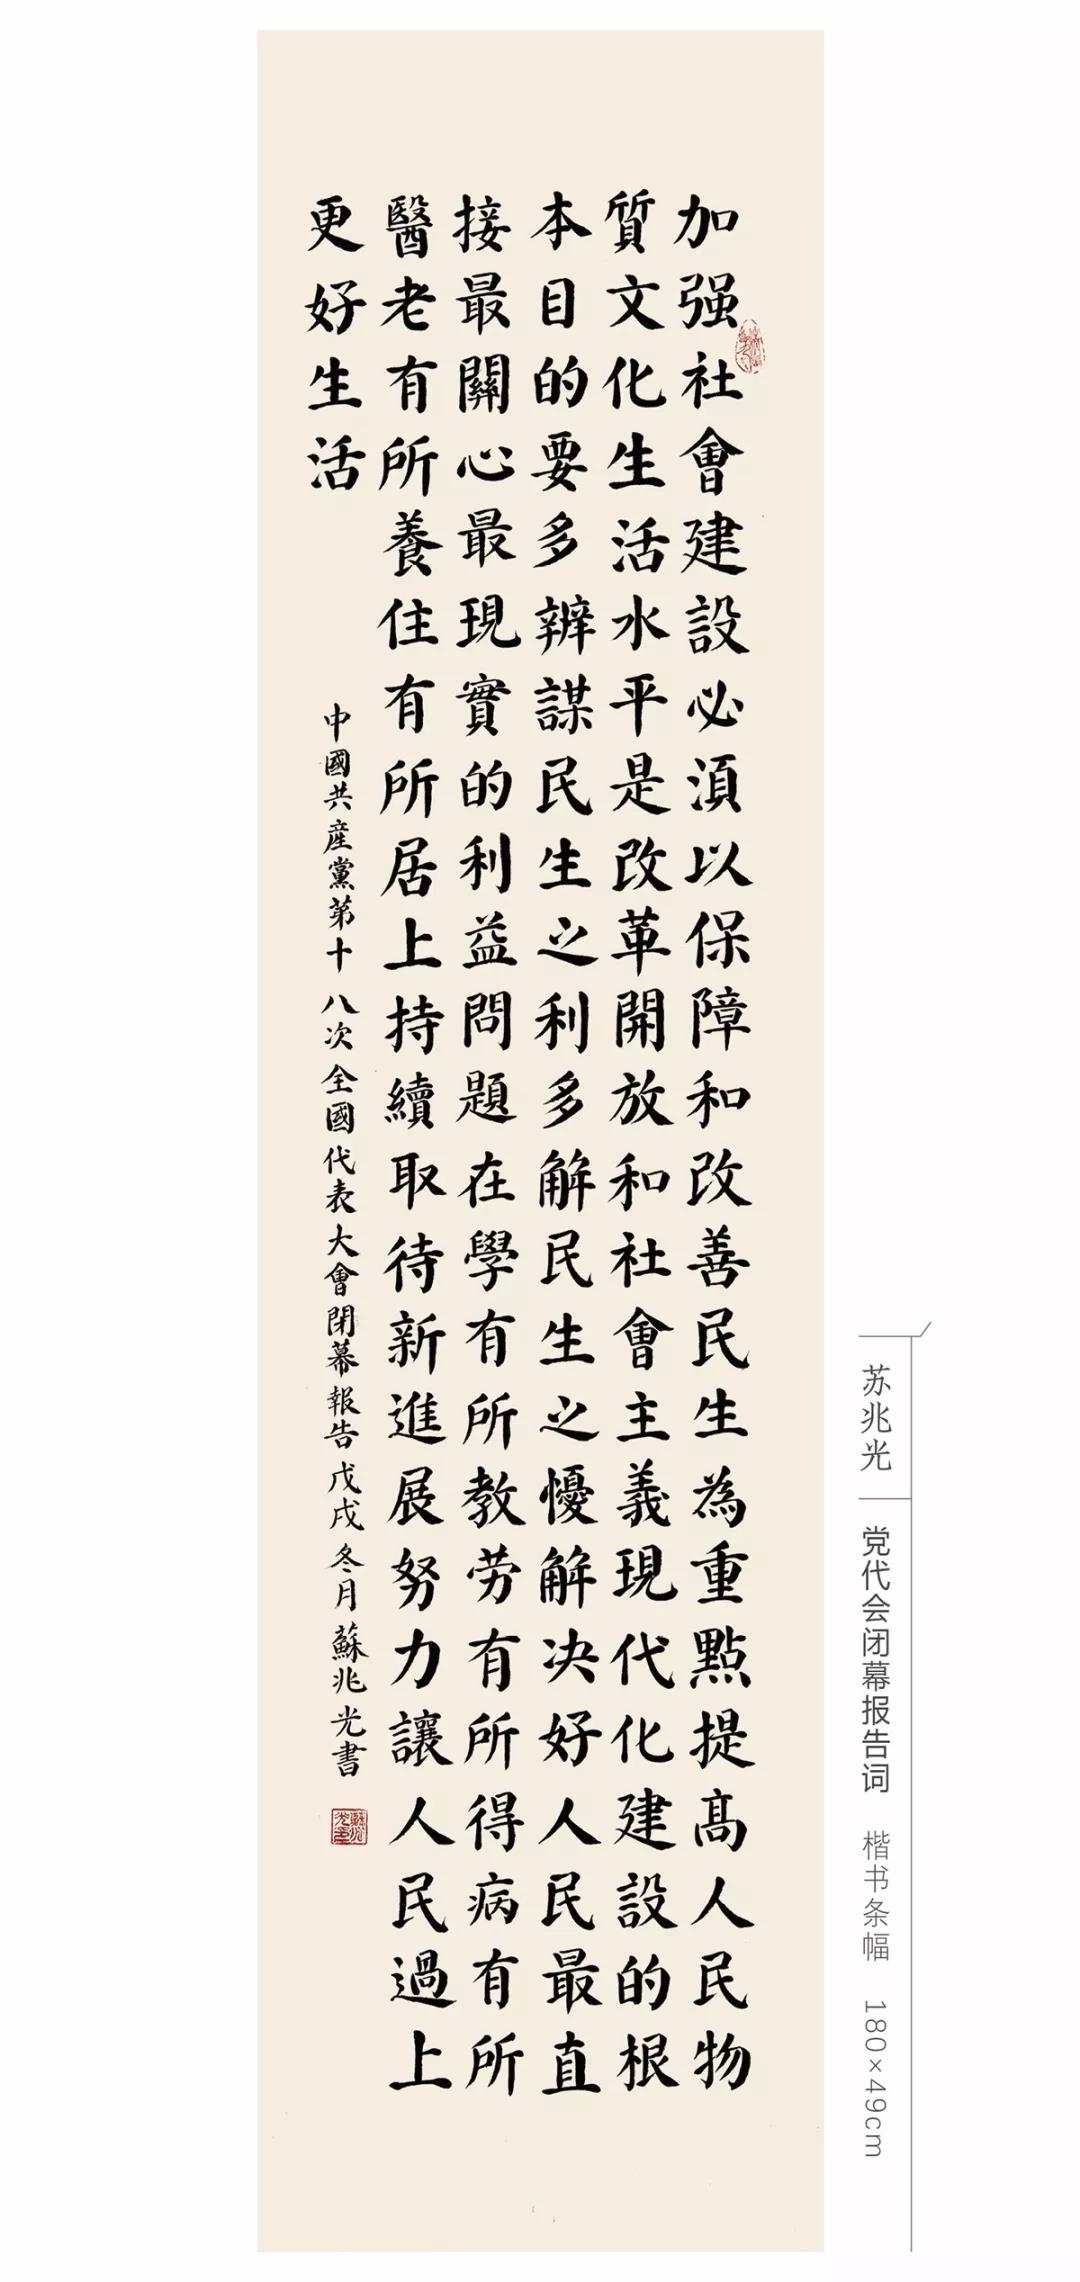 加强社會建設必湏以保障和改善民生為重點提髙人民物
質文化生活水平是改革開放和社會主義現代化建設的根
本目的要多辨謀民生之利多解民生之懮解决好人民最直
接最關心最現實的利益問題在學有所教劳有所得病有所
醫老有所養住有所居上持續取待新進展努力讓人民過上
更好生活
中國共産黨第十八次全國代表大會閉幕報告戊戌冬月蘇兆光書
苏兆光
党代会闭幕报告词 楷书条幅 180×49cm